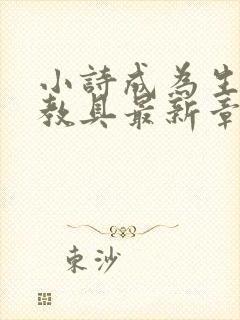 小詩成為生
教具最新章
東沙